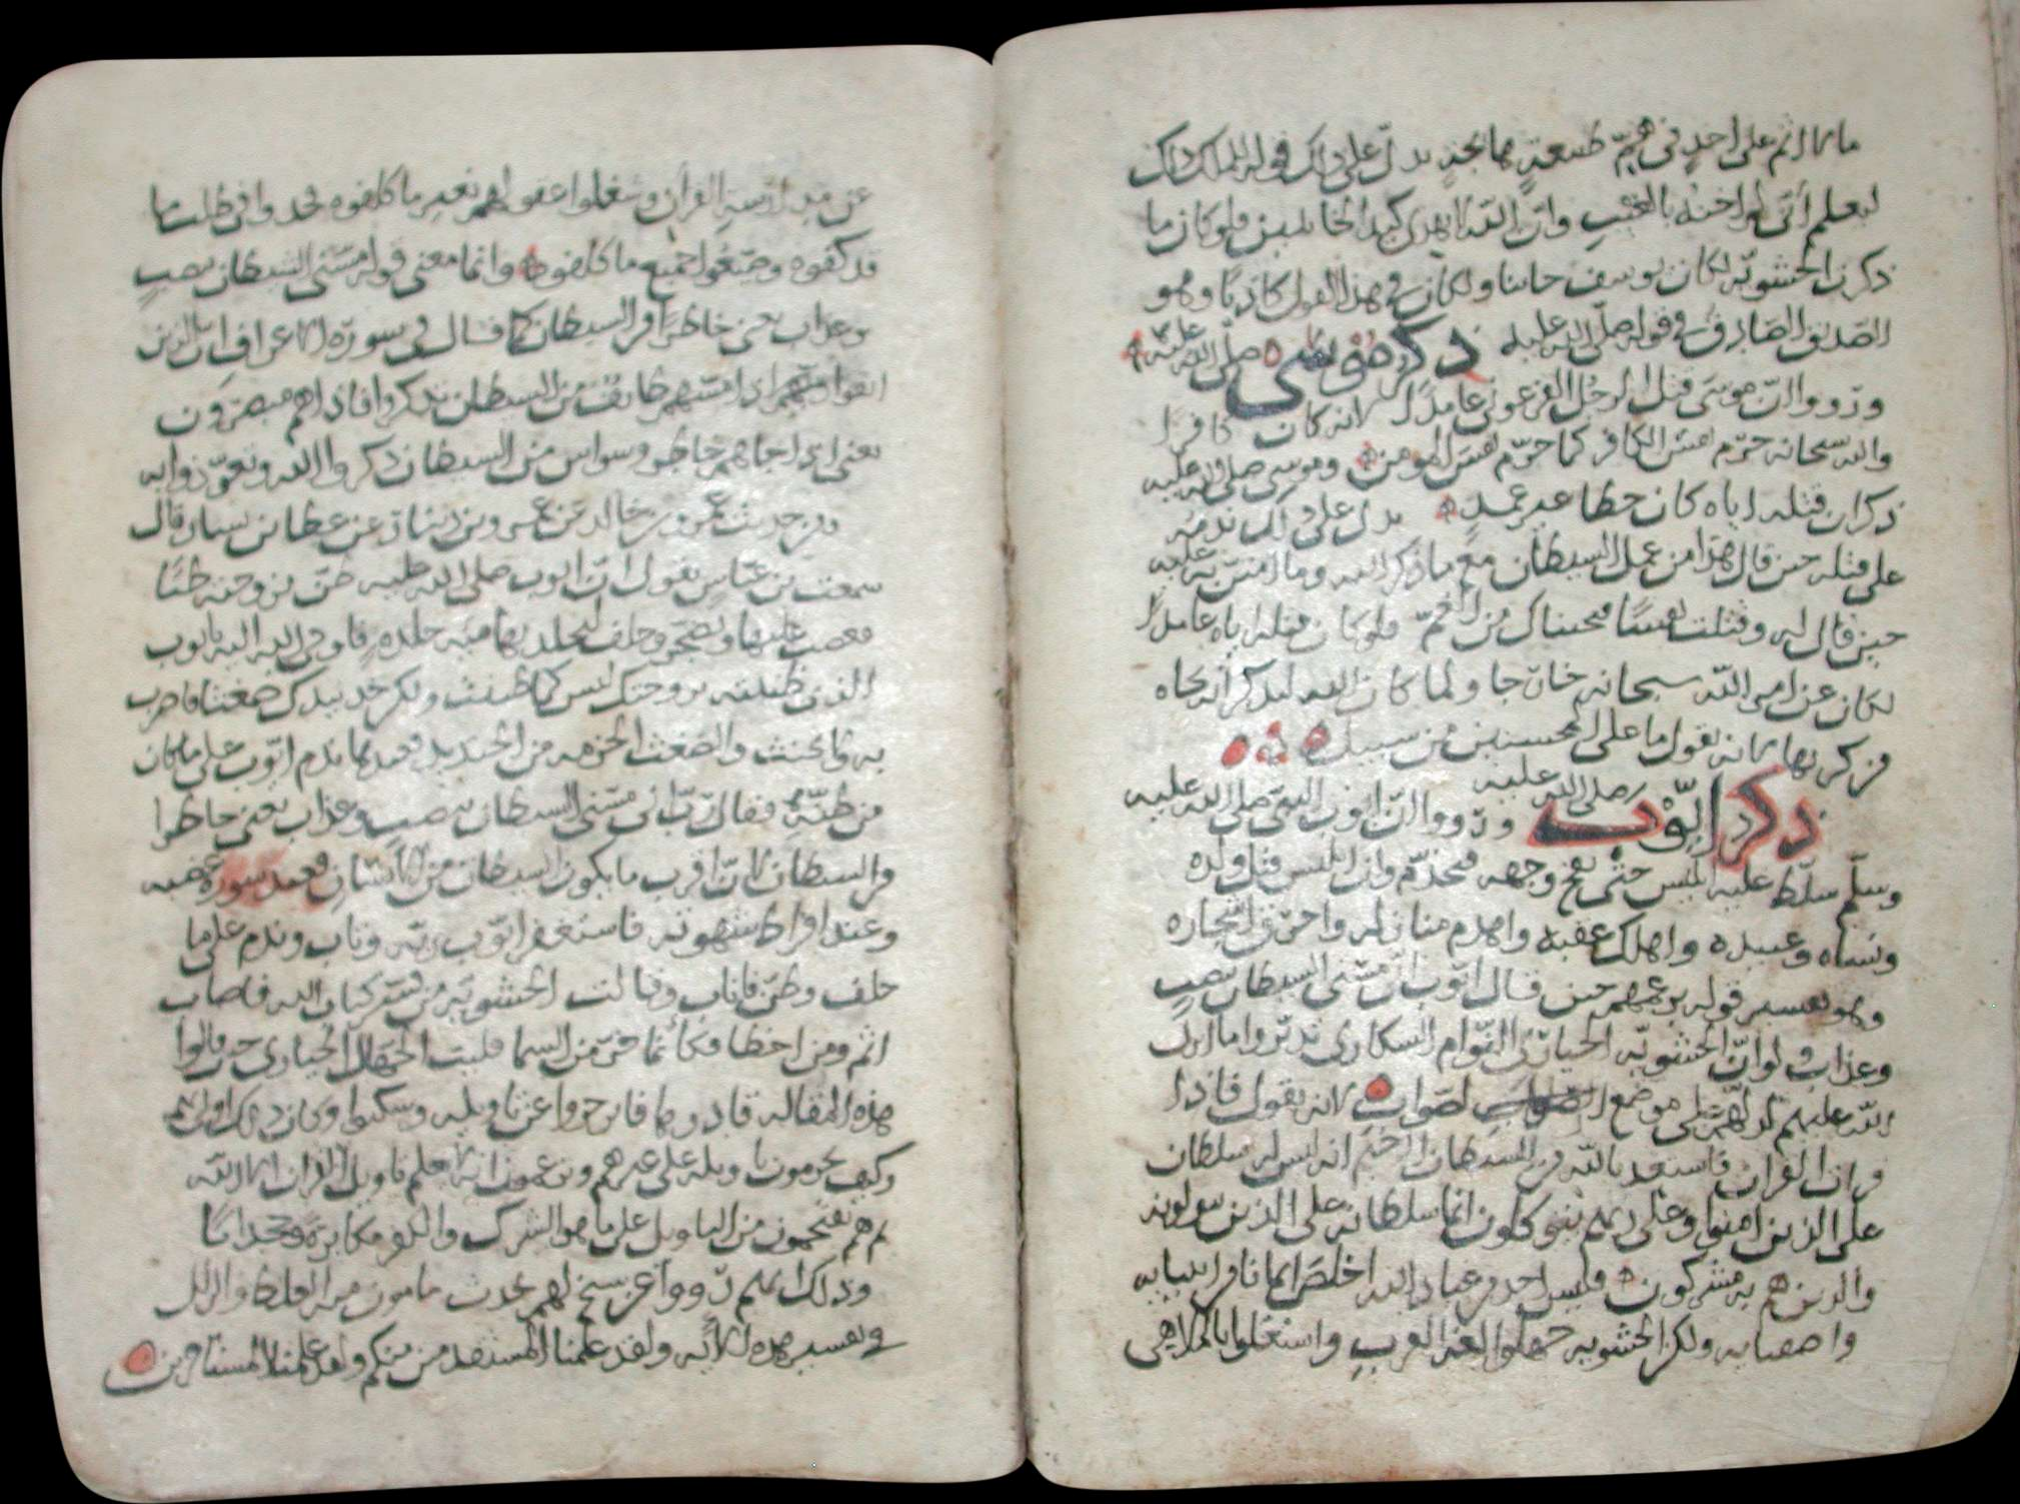 ما لا اثم على احد في همّ طبيعة بدل على ذلك قوله لملك ذلك
ليعلم أني لم اخنه بالغيب وان الله لا يهدي كيد الخائنين ولو كان ما
ذكرت الحشوية لكان يوسف خاينا ولكان في هذا القول كاذبا وهو
الصديق الصادق في قوله صلى الله عليه ذكر موسى صلى الله عليه
ورووا ان موسى قتل الرجل الفرعوني عامدا لانه كان كافرا
والله سبحانه حرّم نفس الكافر كما حرّم نفس المومن وموسى صلى الله عليه
ذكر ان قتله اياه كان خطا غير عمد يدل على ذلك ندمه
على قتله حين قال هذا من عمل الشيطان مع ما ذكر الله وما امتن به عليه
حين قال له وقتلت نفسا فنجيناك من الغم فلو كان قتله اياه عامدا
لكان عن امر الله سبحانه خارجا ولما كان الله ليذكر انه نجاه
من كربها لانه يقول ما على المحسنين من سبيل
ذكر ايوب صلى الله عليه ورووا ان ايوب النبي صلى الله عليه
وسلم سلّط عليه ابليس حتى نفخ وجهه فجذم وان ابليس قتل ولده
ونساه وعبيده واهلك عقبه واهدم منازله واحرق اشجاره
وهو تفسير قوله بزعمهم حين قال ايوب اني مسني الشيطان بنصب
وعذاب ولو ان الحشوية الحيارى النوام السكارى تدبروا ما انزل
الله عليهم لدلهم على موضع الصواب لانه يقول فاذا
قرات القران فاستعذ بالله من الشيطان الرجيم انه ليس له سلطان
على الذين امنوا وعلى ربهم يتوكلون انما سلطانه على الذين يتولونه
والذين هم به مشركون فليس احد من عباد الله اخلص ايمانا من انبيايه
واصفيايه ولكن الحشوية جهلوا لغة العرب واشتغلوا بالملاهي
عن مدارسة القران وشغلوا عقولهم بغير ما كلفوه فجدوا في طلب ما
قد كفوه وضيعوا جميع ما كلفوه وانما معنى قوله مسني الشيطان بنصب
وعذاب يعني خاطرا من الشيطان كما قال في سورة الاعراف ان الذين
اتقوا اذا مسهم طائف من الشيطان تذكروا فاذا هم مبصرون
يعني اذا جاهم خاطر وسواس من الشيطان ذكروا الله وتعوذوا به
ومن حديث عمرو بن خالد عن عمرو بن دينار عن عطا بن يسار قال
سمعت بن عباس يقول ان ايوب صلى الله عليه ظن بزوجته ظنا
فغضب عليها وضجر وحلف ليجلدنها مئه جلدة فاوحى الله اليه يا ايوب
الذي ظننته بزوجتك ليس كما ظننت ولكن خذ بيدك ضغثا فاضرب
به ولا تحنث والضغث الحزمه من فعندها ندم ايوب على ما كان
من ظنه فقال رب اني مسني الشيطان بنصب وعذاب يعني خاطرا
من الشيطان لان اقرب ما يكون الشيطان من الانسان فعند سورة غضبه
وعند افراط شهوته فاستغفر ايوب ربه وتاب وندم على ما
حلف وظن فاناب وقالت الحشوية من فسر كتاب الله فاصاب
اثم ومن اخطا فكأنما خرّ من السما فليت الجهال الحيارى حين قالوا
هذه المقاله وسكتوا وكان ذلك اولى بهم
وكيف يحرمون تاويله على غيرهم ويزعمون انه لا يعلم تاويل القران الا الله
ثم هم يقتحمون من التاويل على ما هو الشرك والكفر مكابرة
وذلك انهم رووا عن شيخ لهم محدث مامون من الغلط والزلل
في تفسير هذه الاية ولقد علمنا المستقدمين منكم ولقد علمنا المستاخرين